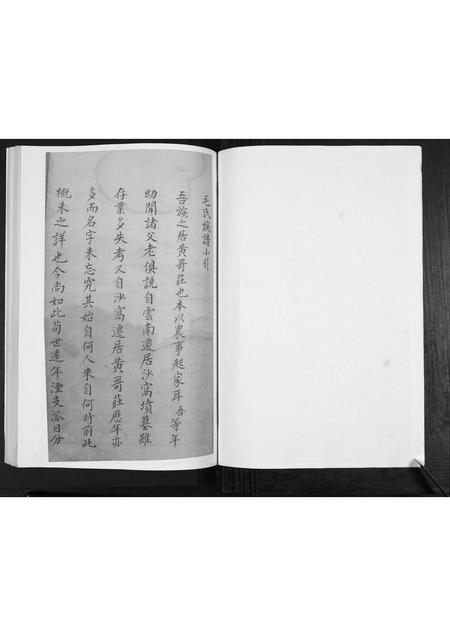 毛氏族譜小引
吾族之居黄哥莊也本以農事起家耳吾等年
幼聞諸父老俱説自雲南遷居沙窩墳墓雖
存業多失考又自沙窩遷居黄哥莊歷年亦
多而名字未忘究其始自何人來自何時前此
概未之詳也今尚如此荀世遠年湮支派日分